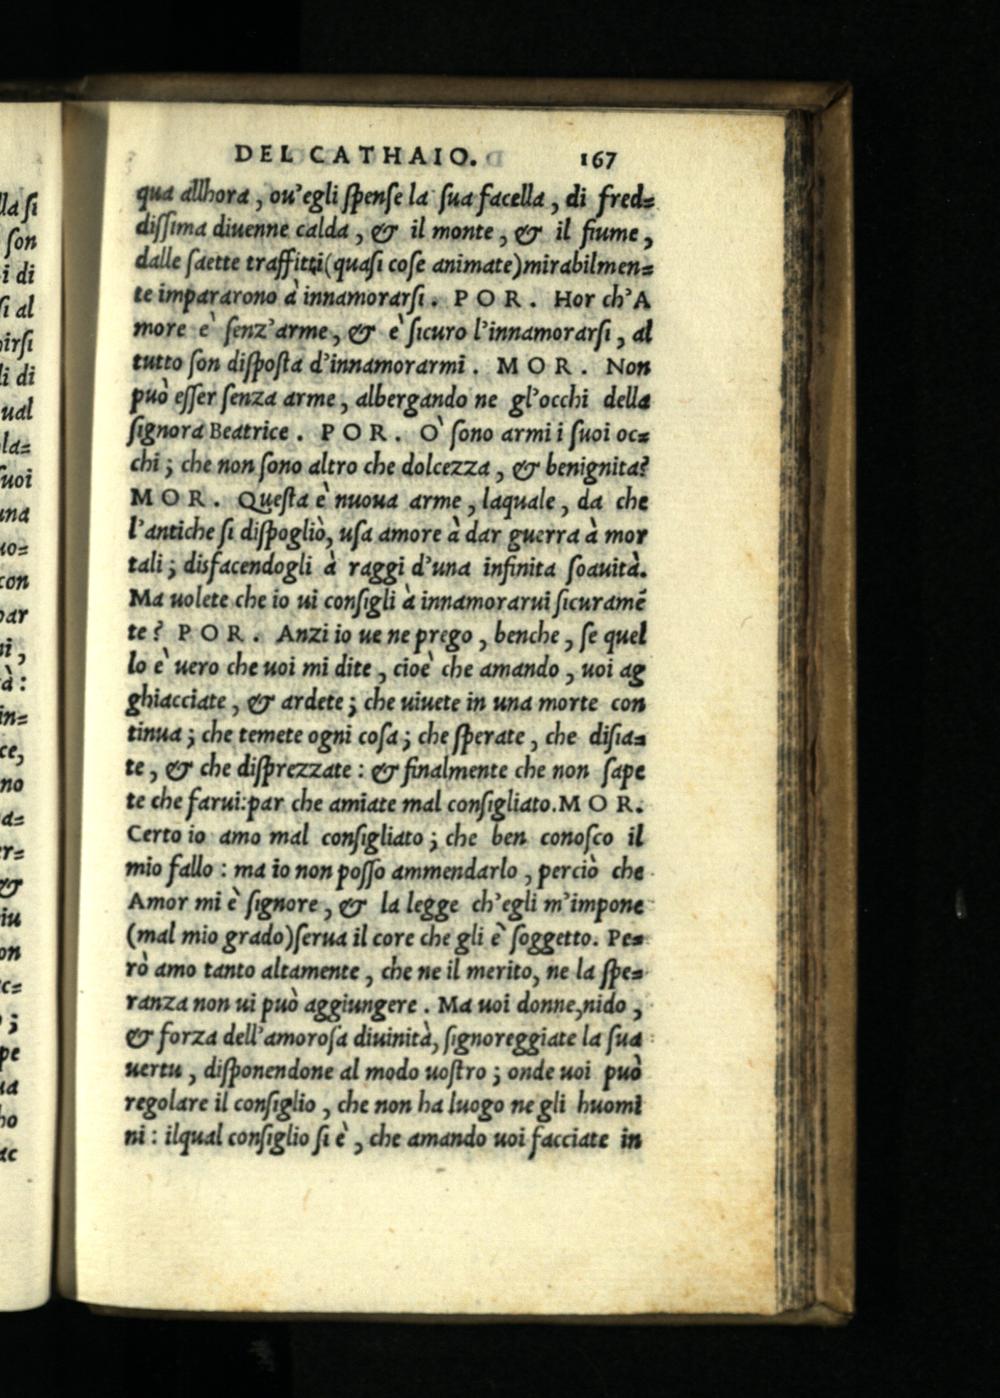 DEL CATHAIO. 167
qua allhora, ou'egli spense la sua facella, di fred=
dissima diuenne calda, & il monte, & il fiume,
dalle saette traffitti(quasi cose animate)mirabilmen=
te impararono à innamorarsi. POR. Hor ch'A
more è senz'arme, & è sicuro l'innamorarsi, al
tutto son disposta d'innamorarmi. MOR. Non
può esser senza arme, albergando ne gl'occhi della
signora Beatrice. POR. O' sono armi i suoi oc=
chi; che non sono altro che dolcezza, & benignita?
MOR. Questa è nuoua arme, laquale, da che
l'antiche si dispogliò, usa amore à dar guerra à mor
tali; disfacendogli à raggi d'una infinita soauità.
Ma uolete che io ui consigli à innamorarui sicuramẽ
te? POR. Anzi io ue ne prego, benche, se quel
lo è uero che uoi mi dite, cioè che amando, uoi ag
ghiacciate, & ardete; che uiuete in una morte con
tinua; che temete ogni cosa; che sperate, che disia=
te, & che disprezzate: & finalmente che non sape
te che farui:par che amiate mal consigliato.MOR.
Certo io amo mal consigliato; che ben conosco il
mio fallo: ma io non posso ammendarlo, perciò che
Amor mi è signore, & la legge ch'egli m'impone
(mal mio grado)serua il core che gli è soggetto. Pe=
rò amo tanto altamente, che ne il merito, ne la spe=
ranza non ui può aggiungere. Ma uoi donne,nido,
& forza dell'amorosa diuinità, signoreggiate la sua
uertu, disponendone al modo uostro; onde uoi può
regolare il consiglio, che non ha luogo ne gli huomi
ni: ilqual consiglio si è, che amando uoi facciate in
lla si
son
i di
si al
irsi
li di
ual
la=
suoi
una
uo=
con
par
ni,
à:
in=
ce,
no
a=
er=
&
iu
on
c=
;
pe
ua
ho
ac